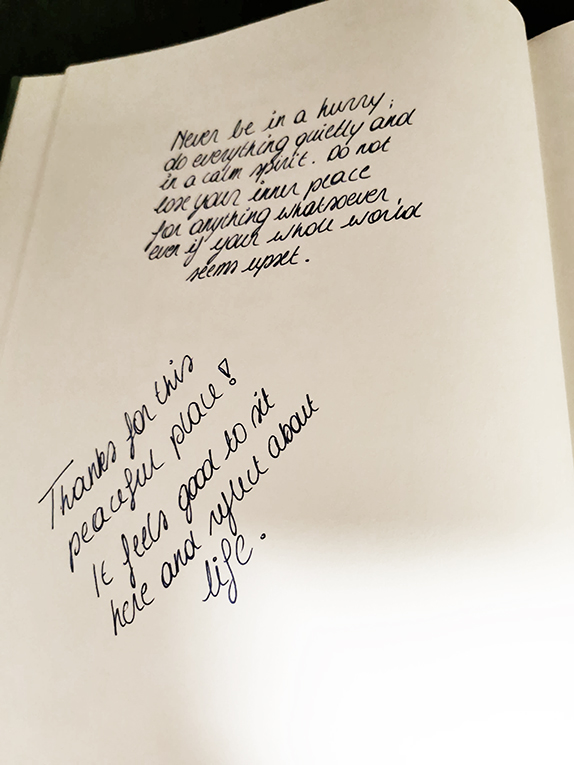 Never be in a hurry;
do everything quietly and
in a calm spirit. Do not
lose your inner peace
for anything whatsoever,
even if your whole world
seems upset.
Thanks for this
peaceful place!
It feels good to sit
here and reflect about
life.